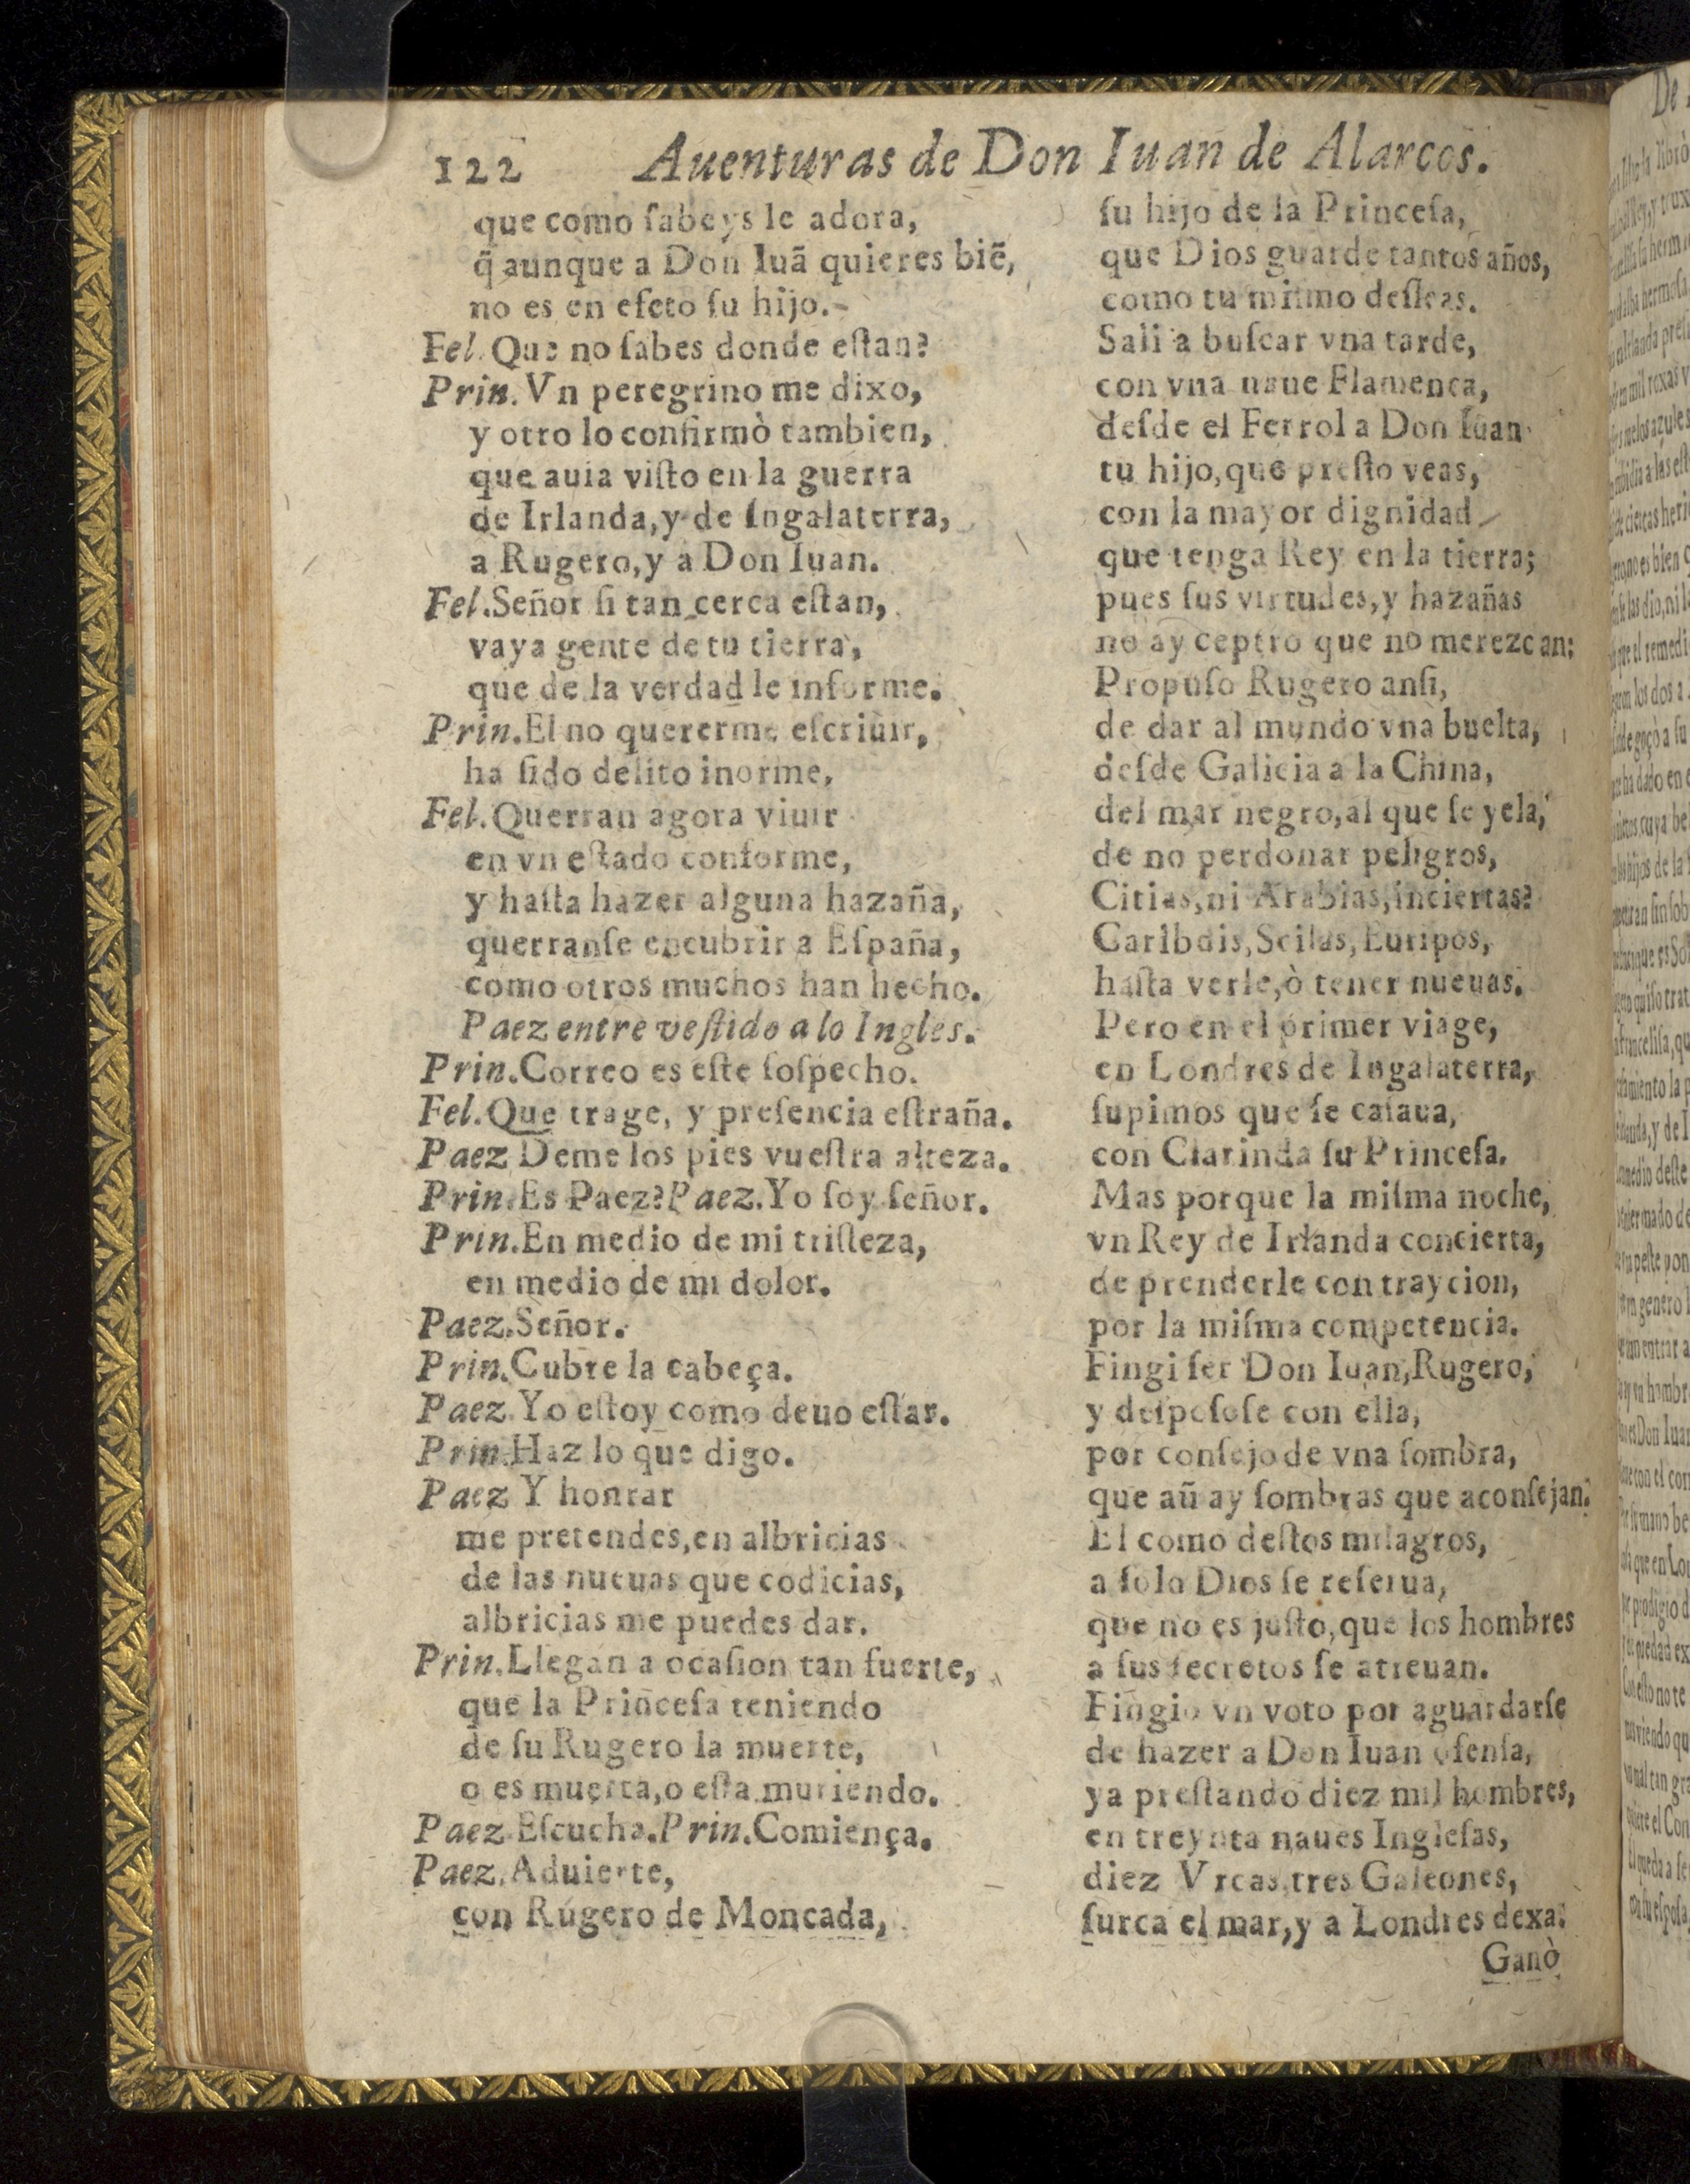 122 Auenturas de Don Iuan de Alarcos.
que como ſabeys le adora,
q̃ aunque a Don Iuã quieres biẽ,
no es en efeto ſu hijo.
Fel. Que no ſabes donde eſtan?
Prin. Vn peregrino me dixo,
y otro lo confirmò tambien,
que auia viſto en la guerra
de Irlanda, y de Ingalaterra,
a Rugero, y a Don Iuan.
Fel. Señor ſi tan cerca eſtan,
vaya gente de tu tierra,
que de la verdad le informe.
Prin. El no quererme eſcriuir,
ha ſido delito inorme,
Fel. Querran agora viuir
en vn eſtado conforme,
y haſta hazer alguna hazaña,
querranſe encubrir a Eſpaña,
como otros muchos han hecho.
Paez entre veſtido a lo Ingles.
Prin. Correo es eſte ſoſpecho.
Fel. Que trage, y preſencia eſtraña.
Paez Deme los pies vueſtra alteza.
Prin. Es Paez? Paez. Yo ſoy ſeñor.
Prin. En medio de mi triſteza,
en medio de mi dolor.
Paez. Señor.
Prin. Cubre la cabeça.
Paez. Yo eſtoy como deuo eſtar.
Prin. Haz lo que digo.
Paez Y honrar
me pretendes, en albricias
de las nueuas que codicias,
albricias me puedes dar.
Prin. Llegan a ocaſion tan fuerte,
que la Princeſa teniendo
de ſu Rugero la muerte,
o es muerta, o eſta muriendo.
Paez. Eſcucha. Prin. Comiença.
Paez. Aduierte,
con Rugero de Moncada,
ſu hijo de la Princeſa,
que Dios guarde tantos años,
como tu miſmo deſſeas.
Sali a buſcar vna tarde,
con vna naue Flamenca,
deſde el Ferrol a Don Iuan
tu hijo, que preſto veas,
con la mayor dignidad
que tenga Rey en la tierra;
pues ſus virtudes, y hazañas
no ay ceptro que no merezcan:
Propuſo Rugero anſi,
de dar al mundo vna buelta,
deſde Galicia a la China,
del mar negro, al que ſe yela,
de no perdonar peligros,
Citias, ni Arabias, inciertas?
Caribdis, Scilas, Euripos,
haſta verle, ò tener nueuas.
Pero en el primer viage,
en Londres de Ingalaterra,
ſupimos que ſe caſaua,
con Clarinda ſu Princeſa.
Mas porque la miſma noche,
vn Rey de Irlanda concierta,
de prenderle con traycion,
por la miſma competencia.
Fingi ſer Don Iuan, Rugero,
y deſpoſoſe con ella,
por conſejo de vna ſombra,
que aũ ay ſombras que aconſejan.
El como deſtos milagros,
a ſolo Dios ſe reſerua,
que no es juſto, que los hombres
a ſus ſecretos ſe atreuan.
Fingio vn voto por aguardarſe
de hazer a Don Iuan ofenſa,
ya preſtando diez mil hombres,
en treynta naues Ingleſas,
diez Vrcas, tres Galeones,
ſurca el mar, y a Londres dexa.
Ganò